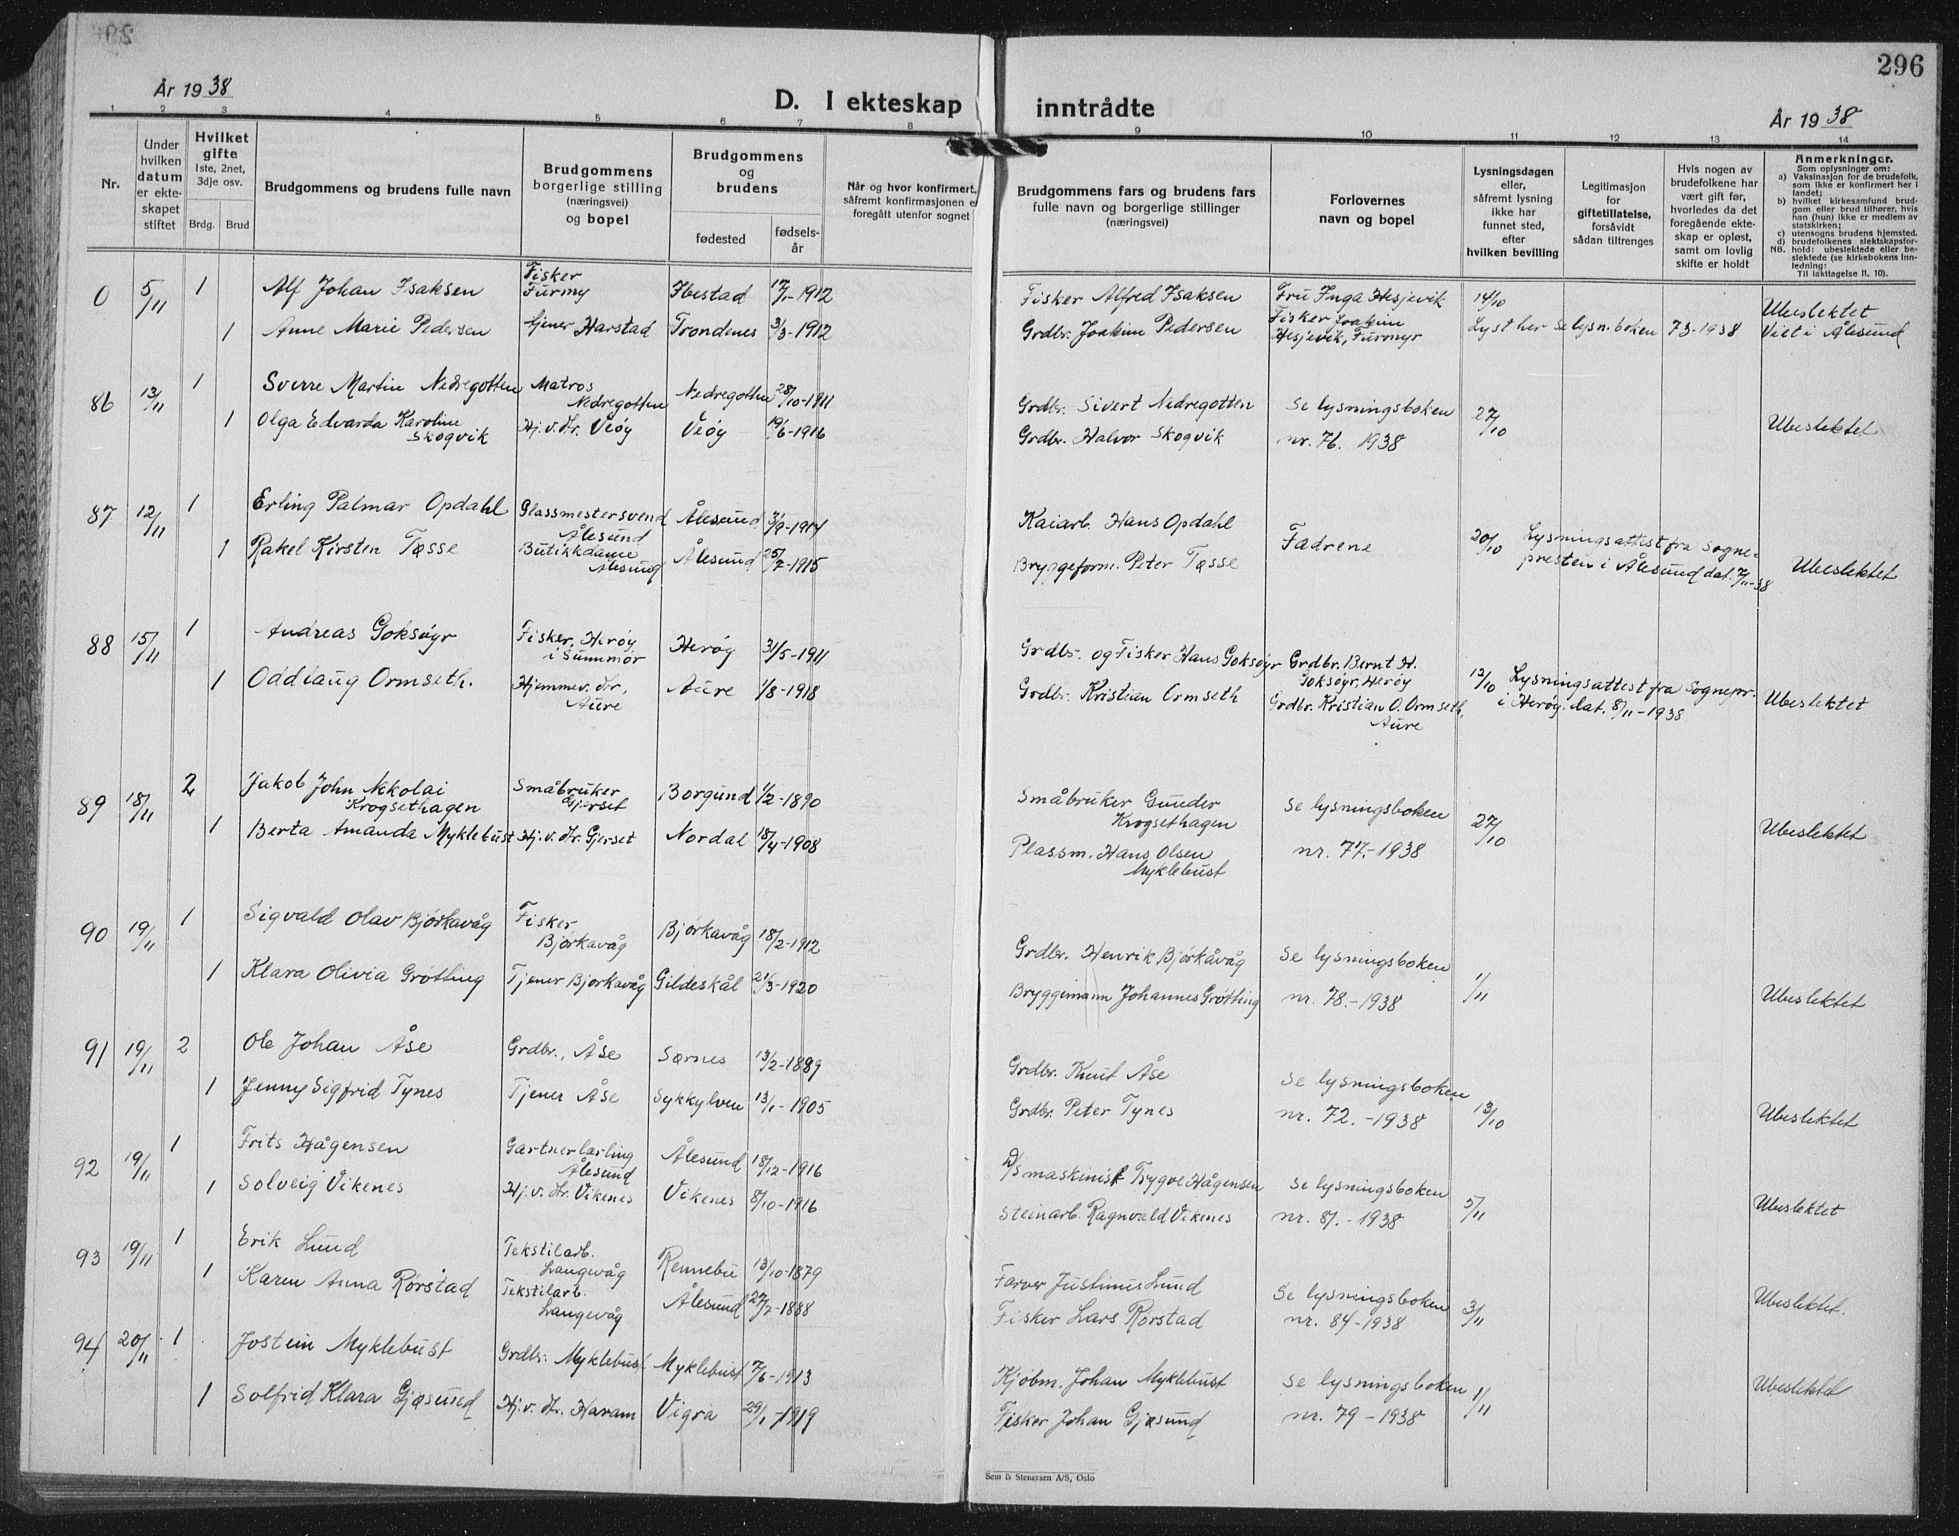 296
År 1938
D. I ekteskap inntrådte
År 1938
1 2 3 4 5 6 7 8 9 10 11 12 13 14
Nr.
Under hvilken datum er ekteskapet stiftet
Hvilket gifte
1ste, 2net, 3dje osv.
Brdg. Brud
Brudgommens og brudens fulle navn
Brudgommens borgerlige stilling (næringsvei) og bopel
Brudgommens og brudens
fødested
fødselsår
Når og hvor konfirmert, såfremt konfirmasjonen er foregått utenfor sognet
Brudgommens fars og brudens fars fulle navn og borgerlige stillinger (næringsvei)
Forlovernes navn og bopel
Lysningsdagen eller, såfremt lysning ikke har funnet sted, efter hvilken bevilling
Legitimasjon for giftetillatelse, forsåvidt sådan tiltrenges
Hvis nogen av brudefolkene har vært gift før, hvorledes da det foregående ekteskap er opløst, samt om lovlig skifte er holdt
Anmerkninger.
Som oplysninger om:
a) Vaksinasjon for de brudefolk, som ikke er konfirmert her i landet;
b) hvilket kirkesamfund brudgom eller brud tilhører, hvis han (hun) ikke er medlem av statskirken;
c) utensogns brudens hjemsted.
d) brudefolkenes slektskapsforhold: ubeslektede eller beslektede (se kirkebokens Innledning:
NB. Til iakttagelse II. 10).
0 5/11 1 Alf Johan Isaksen Fisker Furmy Ibestad 1912 Fisker Alfred Isaksen Fru Inga Hesjevik 14/10 Ubeslektet
1 Anne Marie Pedersen tjener Harstad Trondenes 3/3-1912 Grdbr. Joakim Pedersen Fisker Joakim Hesjevik, Furmyr Lyst her se lysn.boken 73-1938 Viet i Ålesund
86 13/11 1 Sverre Martin Nedregotten Matros Nedregotten Nedregotten 28/10-1911 Grdbr. Sivert Nedregotten Se lysningsboken 27/10
1 Olga Edvarda Karoline Skogvik Hj.v. dtr. Veøy Veøy 19/6-1916 Grdbr. Halvor Skogvik nr. 76. 1938 Ubeslektet
87 12/11 1 Erling Palmar Opdahl Glassmestersvend Ålesund Ålesund 3/9-1914 Kaiarb. Hans Opdahl Fedrene 20/10 Lysningsattest fra Sognepresten i Ålesund dat. 7/11-38
1 Rakel Kirsten Tæsse Butikkdame Ålesund Ålesund 25/7-1915 Bryggeform. Peter Tæsse Ubeslektet
88 15/11 1 Andreas Goksøyr Fisker, Herøy i Sunnmør Herøy 31/5-1911 Grdbr. og Fisker Hans Goksøyr Grdbr. Bernt H. Goksøyr, Herøy 12/10 Lysningsattest fra Sognepr. i Herøy. dat. 8/11-1938
1 Oddlaug Ormseth. Hjemmev. dtr, Aure Aure 1/8-1918 Grdbr. Kristian Ormseth Grdbr. Kristian O. Ormseth, Aure Ubeslektet
89 18/11 2 Jakob John Nikolai Krogsethagen Småbruker Gjerset Borgund 1/2-1890 Småbruker Gunder Krogsethagen Se lysningsboken 27/10
1 Berta Amanda Myklebust Hj.v. dtr. Gjerset Nordal 18/4-1908 Plassm. Hans Olsen Myklebust nr. 77.-1938 Ubeslektet
90 19/11 1 Sigvald Olav Bjørkavåg Fisker Bjørkavåg Bjørkavåg 18/2-1912 Grdbr. Henrik Bjørkåvåg Se lysningsboken 1/11
1 Klara Olivia Grøtting Tjener Bjørkavåg Gildeskål 21/3-1920 Bryggemann Johannes Grøtting nr. 78.-1938 Ubeslektet
91 19/11 2 Ole Johan Åse Grdbr., Åse Særnes 13/2-1889 Grdbr. Knut Åse Se lysningsboken 13/10
1 Jenny Sigfrid Tynes Tjener Åse Sykkylven 13/1-1905 Grdbr. Peter Tynes nr. 72.-1938 Ubeslektet
92 19/11 1 Frits Hågensen Gartnerlærling Ålesund Ålesund 18/12-1916 D/S maskinist Trygve Hågensen Se lysningsboken 5/11
1 Solveig Vikenes Hj.v. dtr. Vikenes Vikenes 8/10-1916 Steinarb. Ragnvald Vikenes nr. 81.-1938 Ubeslektet
93 19/11 1 Erik Lund Tekstilarb. Langevåg Rennebu 13/10-1879 Farver Justinus Lund Se lysningsboken 3/11
1 Karen Anna Rørstad Tekstilarb. Langevåg Ålesund 27/7-1888 Fisker Lars Rørstad nr. 84-1938 Ubeslektet.
94 20/11 1 Jostein Myklebust Grdbr. Myklebust Myklebust 7/6-1913 Kjøbm. Johan Myklebust Se lysningsboken 1/11
1 Solfrid Klara Gjøsund Hj.v. dtr. Haram Vigra 29/1-1919 Fisker Johan Gjøsund nr. 79-1938 Ubeslektet
Sem & Stenersen A/S, Oslo